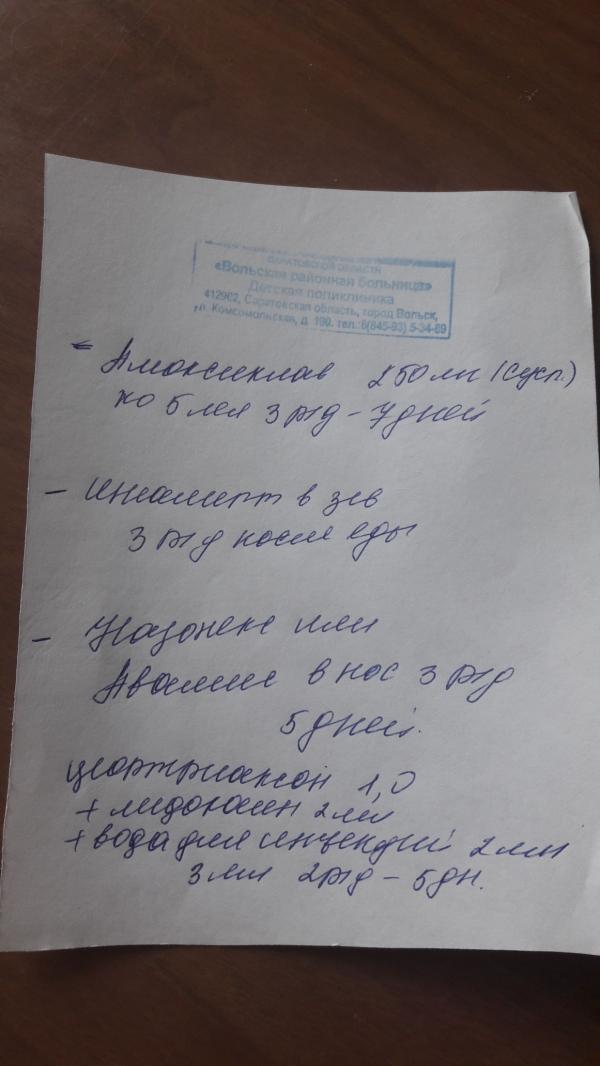 САРАТОВСКОЙ ОБЛАСТИ
«Вольская районная больница»
Детская поликлиника
412902, Саратовская область, город Вольск,
ул. Комсомольская, д. 190. тел.:8(845-93) 5-34-89
- Амоксиклав 250 мл (сусп.)
по 5 мл 3 р/д - 7 дней
- ингалипт в зев
3 р/д после еды
- Назонекс или
Авамис в нос 3 р/д
5 дней.
цефтриаксон 1,0
+ лидокаин 2 мл
+ вода для инъекций 2 мл
3 мл 2 р/д - 5 дн.